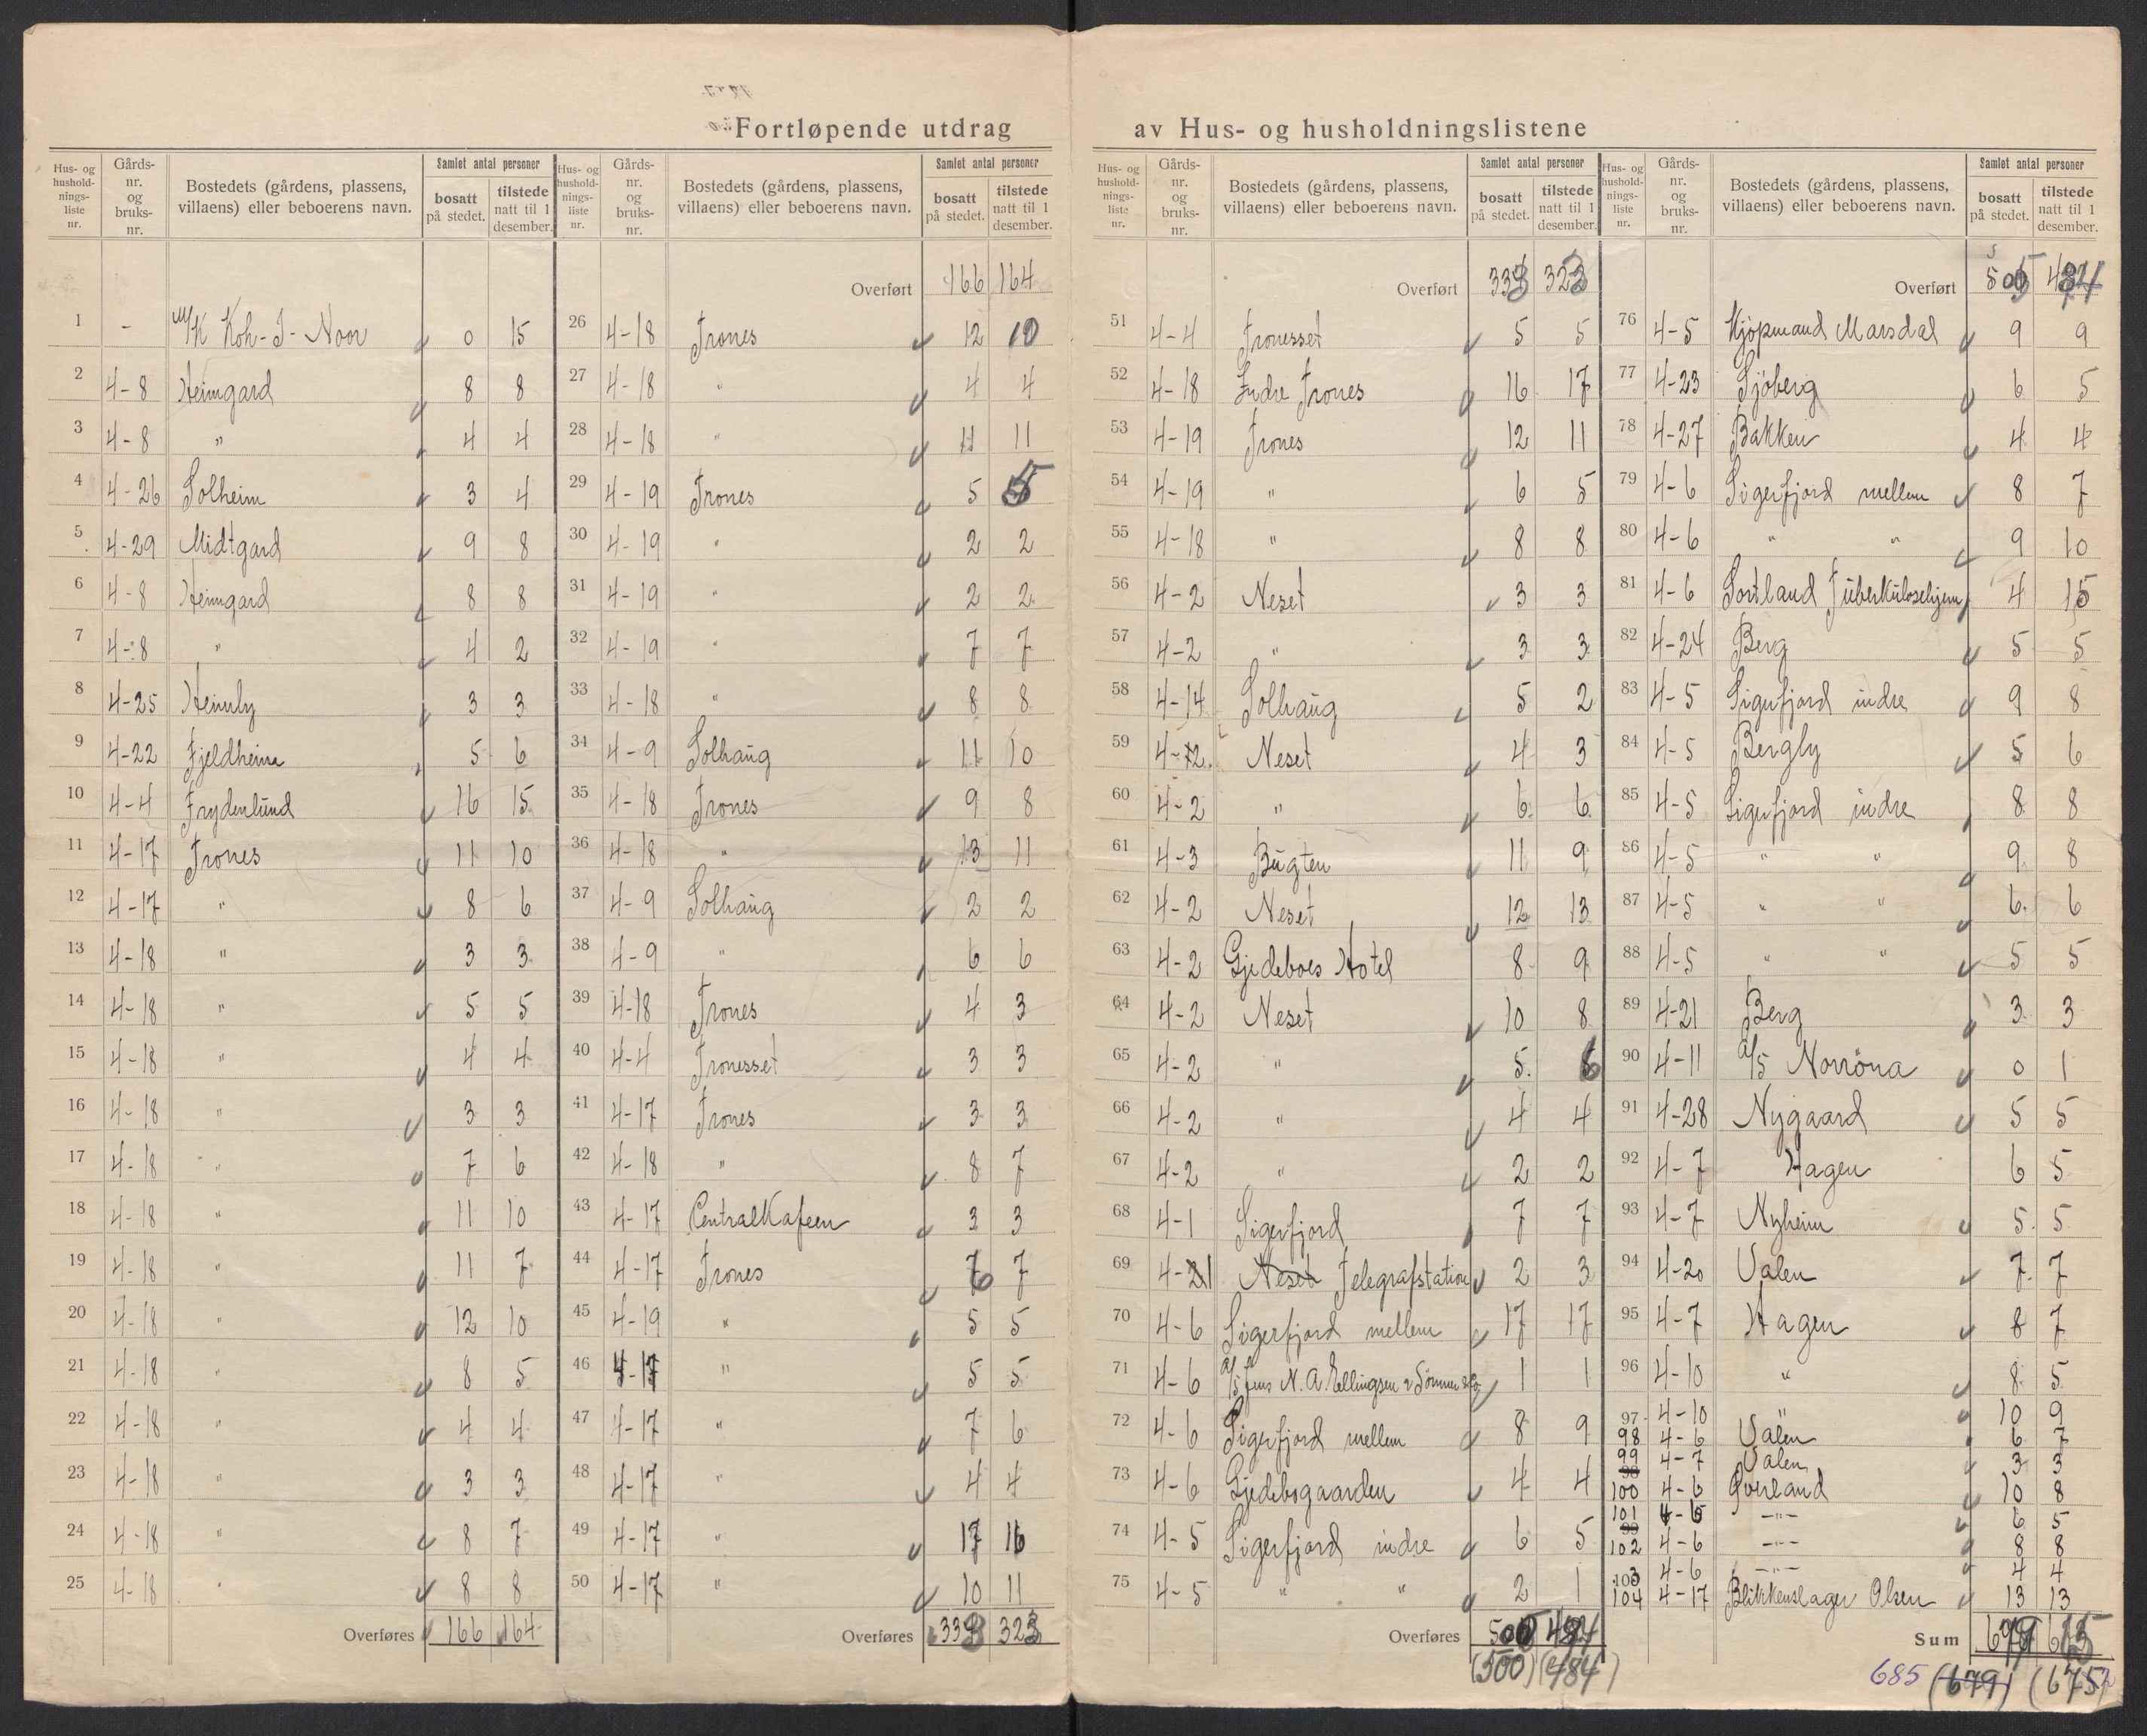 Fortløpende utdrag av Hus- og husholdningslistene
Hus- og hushold-nings-liste nr. | Gårds-nr. og bruks-nr. | Bostedets (gårdens, plassens, villaens) eller beboerens navn. | Samlet antal personer | bosatt på stedet. | tilstede natt til 1 desember.
1 - M/K Koh-I-Noor 0 15
2 4-8 Heimgard 8 8
3 4-8 " 4 4
4 4-26 Solheim 3 4
5 4-29 Midtgard 9 8
6 4-8 Heimgard 8 8
7 4-8 " 4 2
8 4-25 Heimly 3 3
9 4-22 Fjeldheim 5 6
10 4-4 Frydenlund 16 15
11 4-17 Trones 11 10
12 4-17 " 8 6
13 4-18 " 3 3
14 4-18 " 5 5
15 4-18 " 4 4
16 4-18 " 3 3
17 4-18 " 7 6
18 4-18 " 11 10
19 4-18 " 11 7
20 4-18 " 12 10
21 4-18 " 8 5
22 4-18 " 4 4
23 4-18 " 3 3
24 4-18 " 8 7
25 4-18 " 8 8
Overføres 166 164
Hus- og hushold-nings-liste nr. | Gårds-nr. og bruks-nr. | Bostedets (gårdens, plassens, villaens) eller beboerens navn. | Samlet antal personer | bosatt på stedet. | tilstede natt til 1 desember.
Overført 166 164
26 4-18 Trones 12 10
27 4-18 " 4 4
28 4-18 " 11 11
29 4-19 Trones 5 5
30 4-19 " 2 2
31 4-19 " 2 2
32 4-19 " 7 7
33 4-18 " 8 8
34 4-9 Solhaug 11 10
35 4-18 Trones 9 8
36 4-18 " 13 11
37 4-9 Solhaug 2 2
38 4-9 " 6 6
39 4-18 Trones 4 3
40 4-4 Tronesset 3 3
41 4-17 Trones 3 3
42 4-18 " 8 7
43 4-17 Centralkafeen 3 3
44 4-17 Trones 7
45 4-19 " 5 5
46 4-17 " 5 5
47 4-17 " 7 6
48 4-17 " 4 4
49 4-17 " 17 16
50 4-17 " 10 11
Overføres 333 323
Hus- og hushold-nings-liste nr. | Gårds-nr. og bruks-nr. | Bostedets (gårdens, plassens, villaens) eller beboerens navn. | Samlet antal personer | bosatt på stedet. | tilstede natt til 1 desember.
Overført 333 323
51 4-4 Tronesset 5 5
52 4-18 Indre Trones 16 17
53 4-19 Trones 12 11
54 4-19 " 6 5
55 4-18 " 8 8
56 4-2 Neset 3 3
57 4-2 " 3 3
58 4-14 Solhaug 5 2
59 4-2 Neset 4 3
60 4-2 " 6 6
61 4-3 Bugten 11 9
62 4-2 Neset 12 13
63 4-2 Gjedeboes Hotel 8 9
64 4-2 Neset 10 8
65 4-2 " 5 6
66 4-2 " 4 4
67 4-2 " 2 2
68 4-1 Sigerfjord 7 7
69 4-21 Neset Telegrafstation 2 3
70 4-6 Sigerfjord mellem 17 17
71 4-6 A/S Jens N. A. Ellingsen & Sønner 1 1
72 4-6 Sigerfjord mellem 8 9
73 4-6 Gjedebogaarden 4 4
74 4-5 Sigerfjord indre 6 5
75 4-5 " " 2 1
Overføres 500 484
(500) (484)
Hus- og hushold-nings-liste nr. | Gårds-nr. og bruks-nr. | Bostedets (gårdens, plassens, villaens) eller beboerens navn. | Samlet antal personer | bosatt på stedet. | tilstede natt til 1 desember.
Overført 484
76 4-5 Kjøpmand Marsdal 9 9
77 4-23 Sjöberg 6 5
78 4-27 Bakken 4 4
79 4-6 Sigerfjord mellem 8 7
80 4-6 " " 9 10
81 4-6 Sortland Tuberkulosehjem 4 15
82 4-24 Berg 5 5
83 4-5 Sigerfjord indre 9 8
84 4-5 Bergly 5 6
85 4-5 Sigerfjord indre 8 8
86 4-5 " " 9 8
87 4-5 " " 6 6
88 4-5 " " 5 5
89 4-21 Berg 3 3
90 4-11 A/S Norröna 0 1
91 4-28 Nygaard 5 5
92 4-7 Hagen 6 5
93 4-7 Nyheim 5 5
94 4-20 Valen 7 7
95 4-7 Hagen 8 7
96 4-10 " 8 5
97 4-10 " 10 9
98 4-6 Valen 6 7
99 4-7 Valen 3 3
100 4-6 Överland 10 8
101 4-6 -"- 6 5
102 4-6 -"- 8 8
103 4-6 -"- 4 4
104 4-17 Blikkenslager Olsen 13 13
Sum
685 (679) (675)